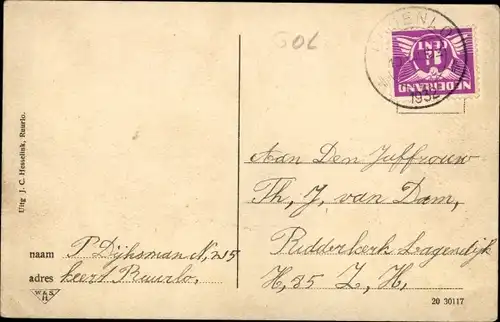 GOL
1932
1½
CENT
NEDERLAND
Uitg J. C. Hesselink, Ruurlo.
Aan Den Juffrouw
Th, J, van Dam,
Ridderkerk Lagendijk
H, 35 Z, H,
naam P Dijhsman N, 215
adres heert Ruurlo.
W&S
H
20 30117